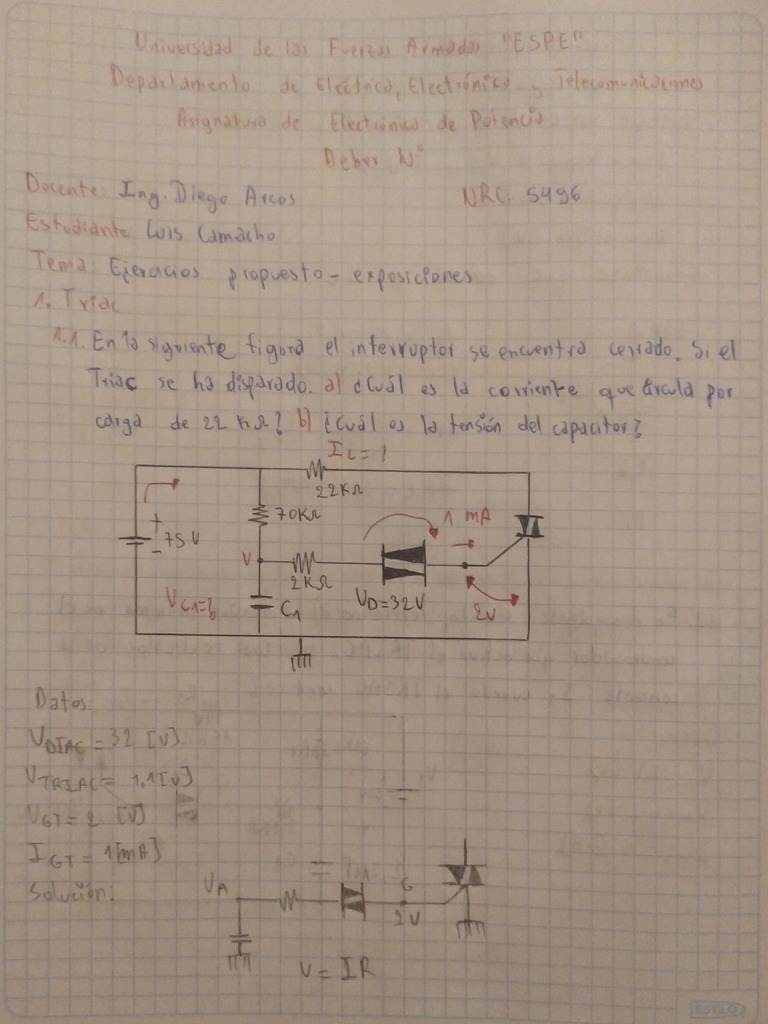 Universidad de las Fuerzas Armadas "ESPE"
Departamento de Eléctrica, Electrónica y Telecomunicaciones
Asignatura de Electrónica de Potencia
Deber N°
Docente: Ing. Diego Arcos NRC: 5496
Estudiante Luis Camacho
Tema: Ejercicios propuesto - exposiciones
1. Triac
1.1. En la siguiente figura el interruptor se encuentra cerrado. Si el
Triac se ha disparado. a) ¿Cuál es la corriente que circula por
carga de 22 KΩ? b) ¿Cuál es la tensión del capacitor?
IL=?
22KΩ
70KΩ
1 mA
+
75 V
-
V
2KΩ
VC1=?
C1
VD=32V
2V
Datos
VDIAC = 32 [V]
VTRIAC = 1,1 [V]
VGT = 2 [V]
IGT = 1 [mA]
Solución:
VA
G
2V
V = IR
ESTILO